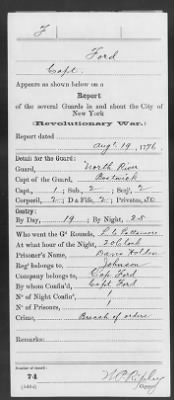 F
Ford
Capt.
Appears as shown below on a
Report
of the several Guards in and about the City of
New York
(Revolutionary War.)
Report dated
Aug. 19, 1776.
Detail for the Guard:
Guard, North River
Capt of the Guard, Bostwick
Capt., 1; Sub., 2; Serj't, 2
Corporal, 2; D & Fife, 2; Privates, 50
Centry:
By Day, 19; By Night, 28
Who went the Gd Rounds, L. C.
At what hour of the Night, 2 o Clock
Prisoner's Name, Holden
Reg't belongs to, Johnson
Company belongs to, Cap Ford
By whom Confin'd, Capt Ford
No of Night Confin't, 1
No of Prisoners, 1
Crime, Breach of orders
Remarks:
Number of sheet:
74
Ripley
Copyist.